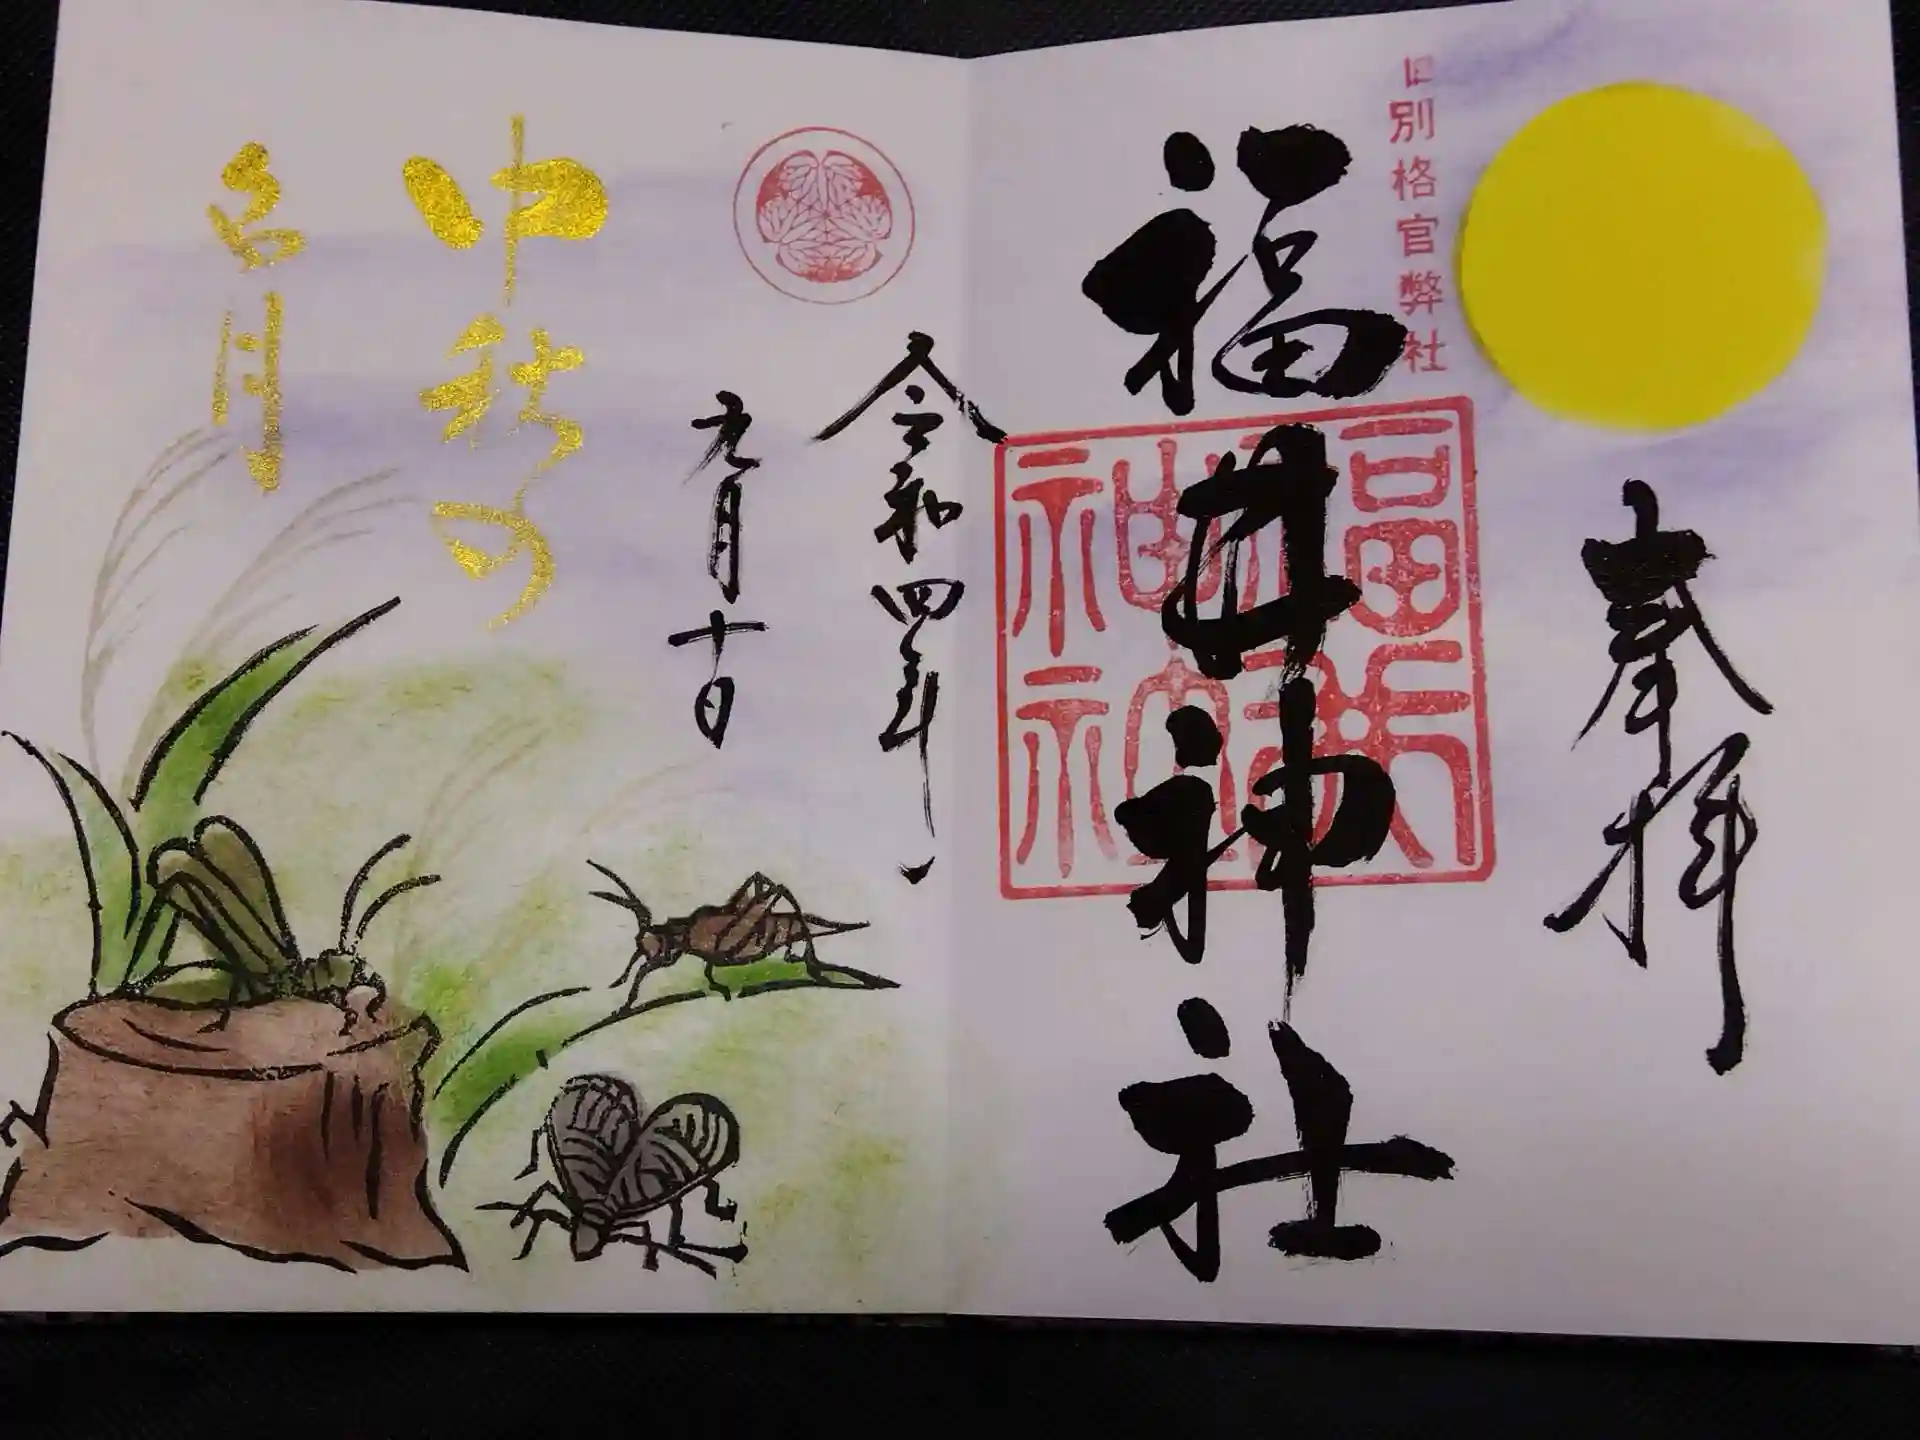 奉拝
旧別格官弊社
福井神社
福井神社
令和四年
九月十日
中秋の
名月